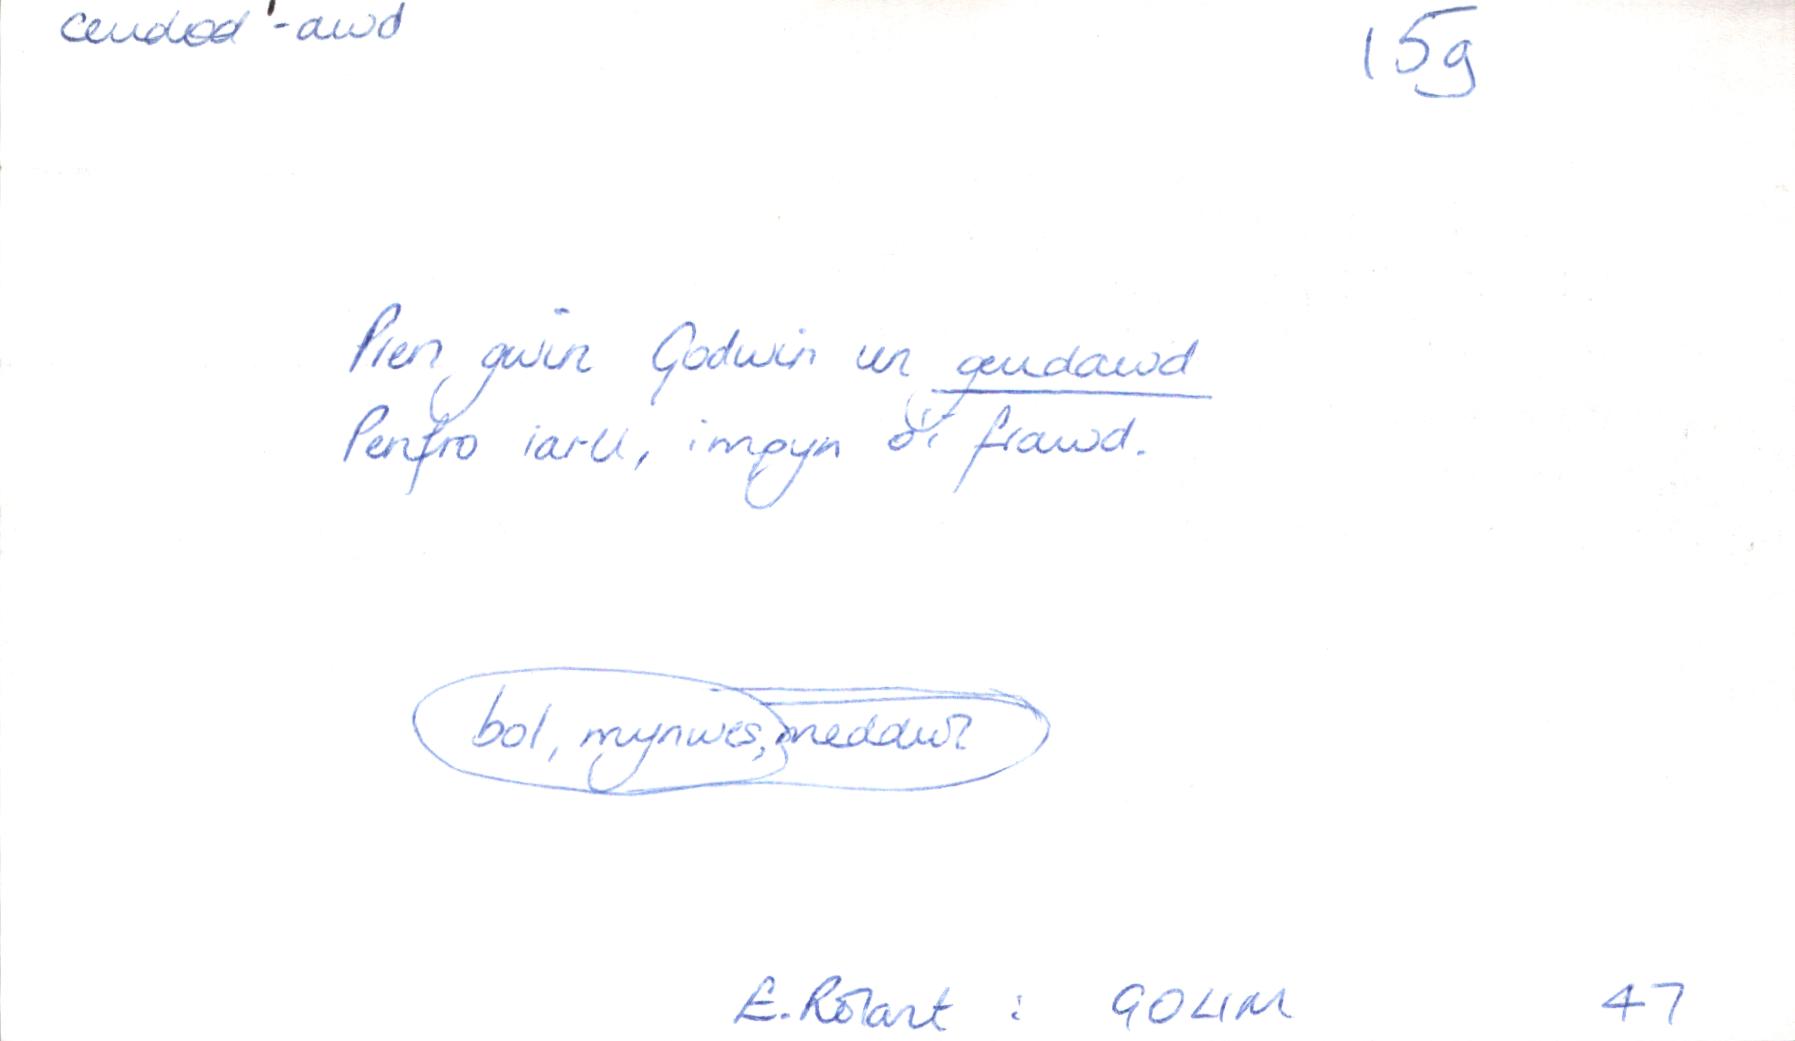 ceudod -awd
15g
Pien gwin Godwin un geudawd
Penfro iarll, impyn o'i frawd.
bol, mynwes, meddwl
E. Rolant : GOLIM
47